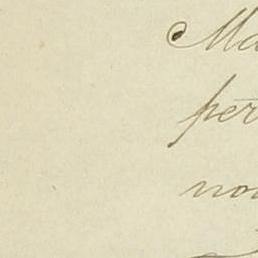 Ma
per
no